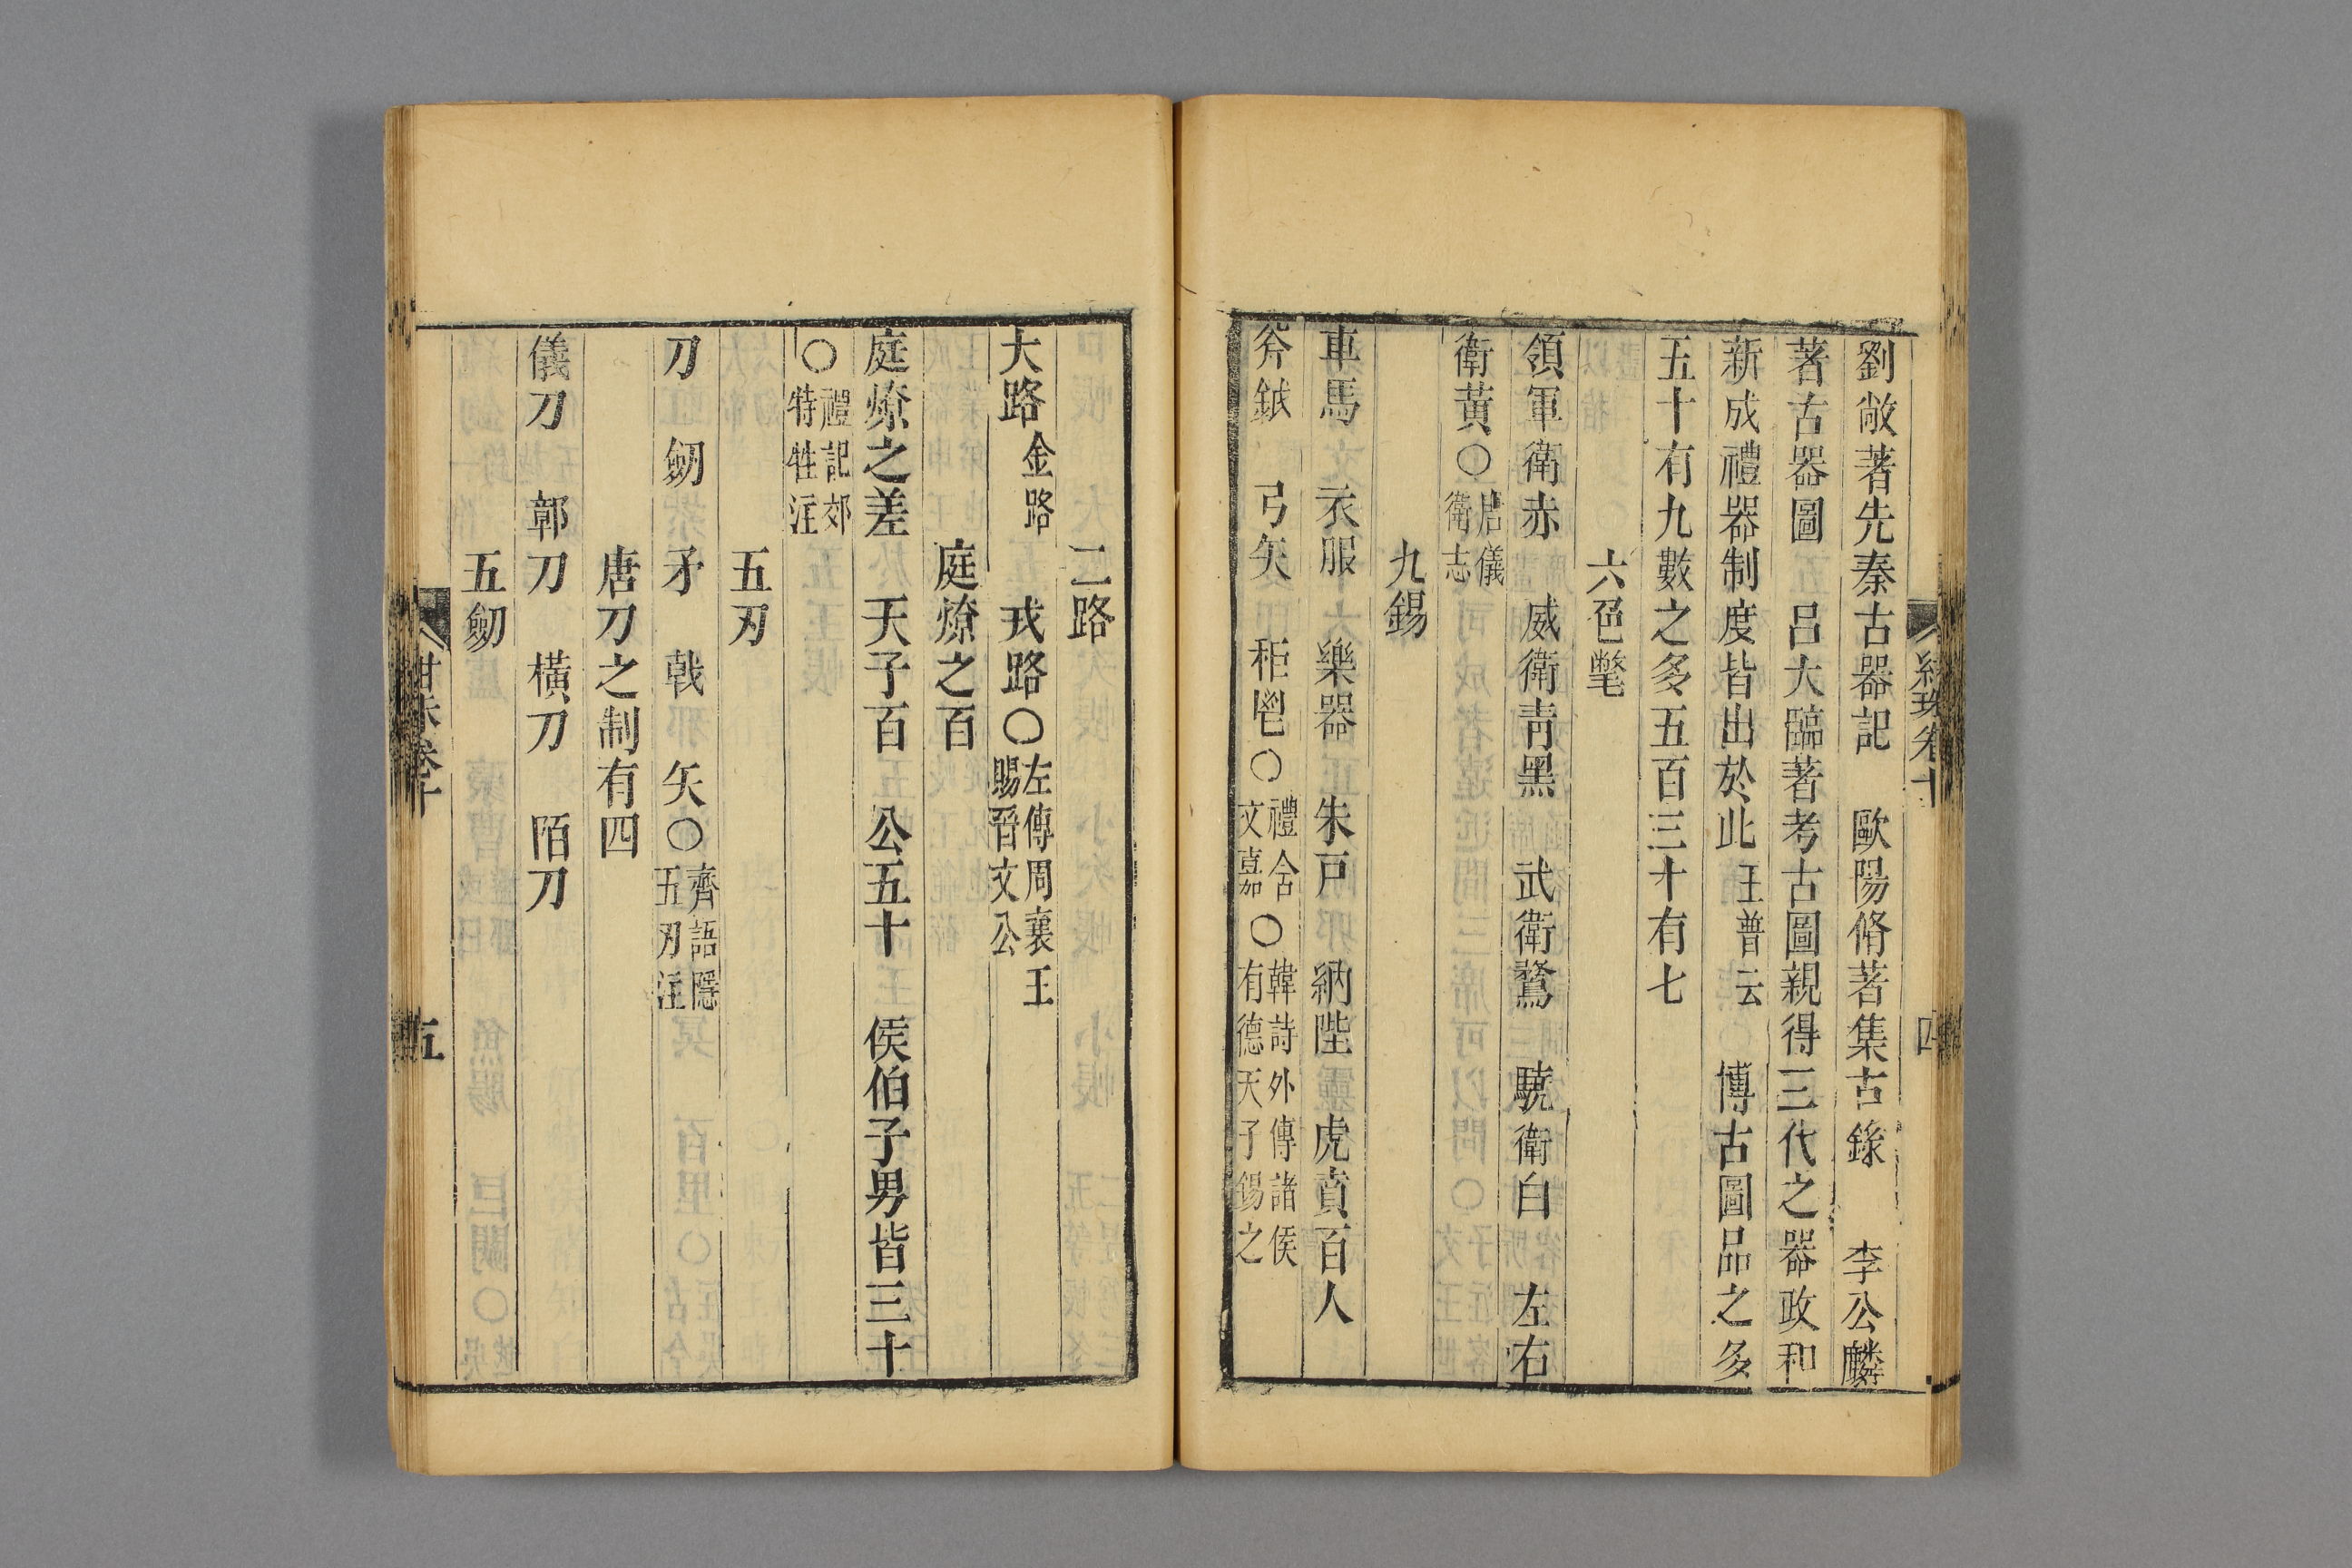 劉敞著先秦古器記　歐陽脩著集古錄　李公麟
著古器圖　呂大臨著考古圖親得三代之器政和
新成禮器制度皆出於此王普云　博古圖品之多
五十有九數之多五百三十有七
六色氅
領軍衛赤　威衛靑黑　武衛鶩　驍衛白　左右
衛黃〇唐儀衛志
九錫
車馬　衣服　樂器　朱戸　納陛　虎賁百人
斧鉞　弓矢　秬鬯〇禮含文嘉〇韓詩外傳諸侯有德天子錫之
二路
大路金路　戎路〇左傳周襄王賜晉文公
庭燎之百
庭燎之差　天子百　公五十　侯伯子男皆三十
〇禮記郊特牲注
五刃
刀　劒　矛　戟　矢〇齊語隱五刃注
唐刀之制有四
儀刀　鄣刀　橫刀　陌刀
五劒
五